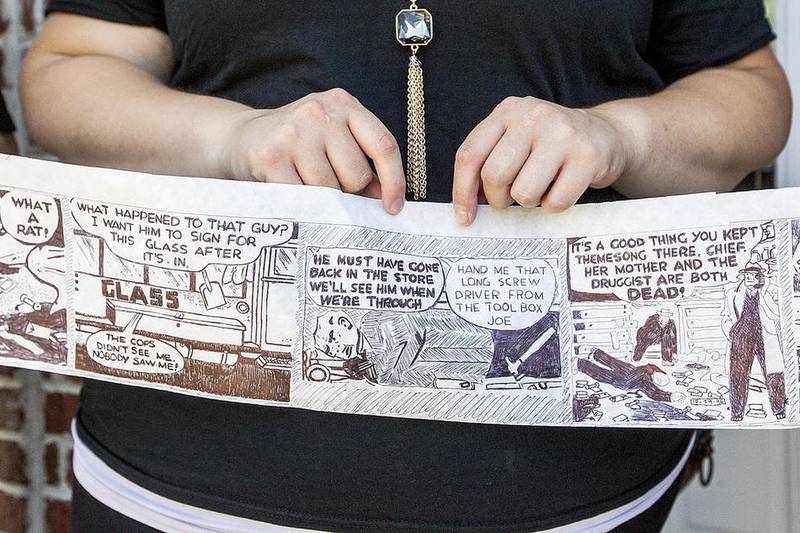 WHAT
A
RAT!
WHAT HAPPENED TO THAT GUY?
I WANT HIM TO SIGN FOR
THIS GLASS AFTER
IT'S IN
GLASS
THE COPS
DIDN'T SEE ME
NOBODY SAW ME!
HE MUST HAVE GONE
BACK IN THE STORE
WE'LL SEE HIM WHEN
WE'RE THROUGH
HAND ME THAT
LONG SCREW
DRIVER FROM
THE TOOL BOX
JOE
IT'S A GOOD THING YOU KEPT
THEMESONG THERE, CHIEF
HER MOTHER AND THE
DRUGGIST ARE BOTH
DEAD!